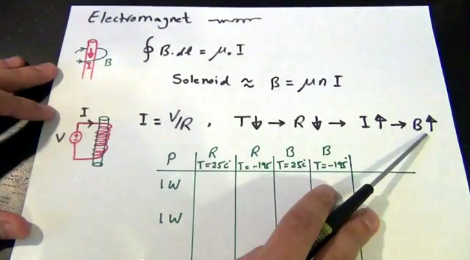 Electromagnet
B
∮ B.dl = μ₀ I
Solenoid ≈ B = μ n I
I
V
I = V/R , T↓ → R↓ → I↑ → B↑
P R T=25c° R T=-195° B T=25c° B T=-195°
1W
1W